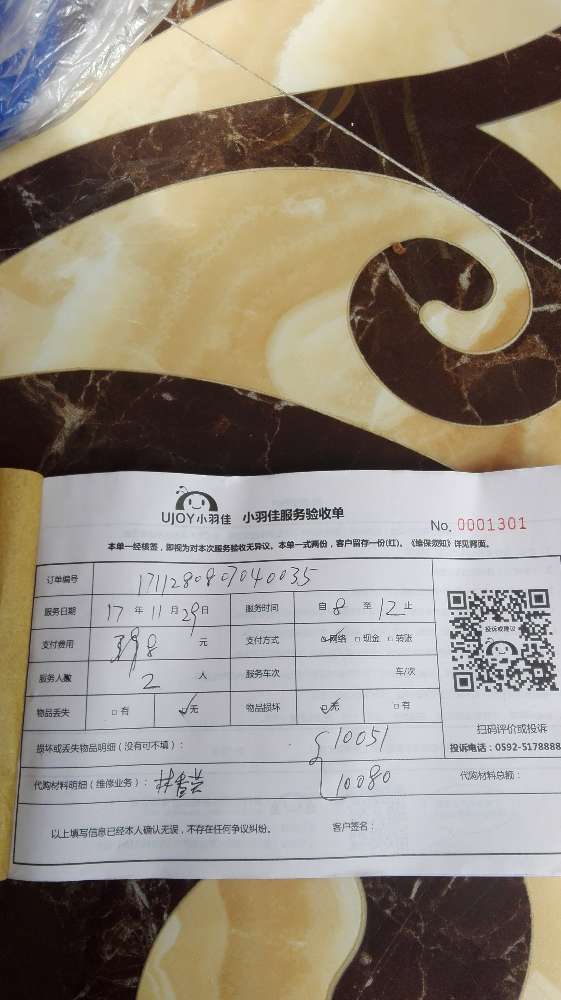 UJOY小羽佳 小羽佳服务验收单
No. 0001301
本单一经核签，即视为对本次服务验收无异议。本单一式两份，客户留存一份(红)。《维保须知》详见背面。
订单编号 1711280807040035
服务日期 17 年 11 月 29 日 服务时间 自 8 至 12 止
支付费用 398 元 支付方式 ☑网络 □现金 □转账
服务人数 2 人 服务车次 车/次
物品丢失 □有 ☑无 物品损坏 ☑无 □有
投诉或建议
扫码评价或投诉
投诉电话：0592-5178888
损坏或丢失物品明细（没有可不填）： 10051
代购材料明细（维修业务）： 10080 代购材料总额：
以上填写信息已经本人确认无误，不存在任何争议纠纷。 客户签名：